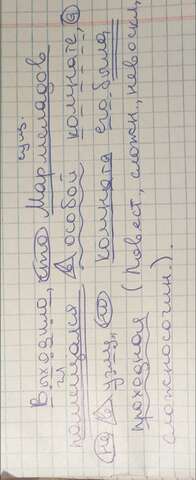 сущ.
Выходило, что Мармеладов
гл.
помещался в особой комнате, а
не в углу, но комната его была
проходная (повест., сложн., невоскл.,
сложносочин.).